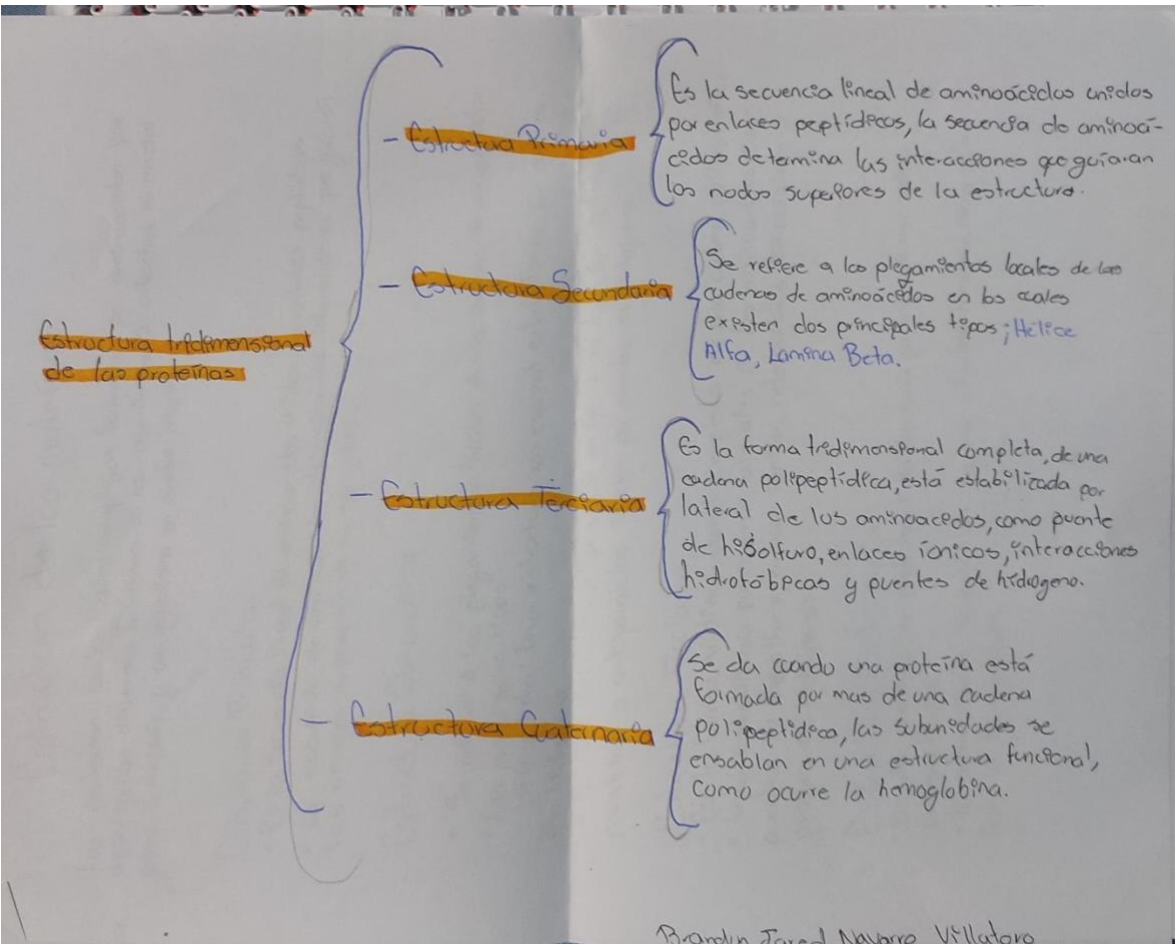 Estructura tridimensional
de las proteínas
- Estructura Primaria
Es la secuencia lineal de aminoácidos unidos
por enlaces peptídicos, la secuencia de aminoá-
cidos determina las interacciones que guiaran
los nodos superiores de la estructura.
- Estructura Secundaria
Se refiere a los plegamientos locales de las
cadenas de aminoácidos en los cuales
existen dos principales tipos; Hélice
Alfa, Lamina Beta.
- Estructura Terciaria
Es la forma tridimensional completa, de una
cadena polipeptídica, está estabilizada por
lateral de los aminoacidos, como puente
de hisolfuro, enlaces íonicos, interacciones
hidrofóbicas y puentes de hidrogeno.
- Estructura Cuaternaria
Se da cuando una proteína está
formada por mas de una cadena
polipeptidica, las subunidades se
ensablan en una estructura funcional,
como ocurre la hemoglobina.
Brandin Jared Navarro Villatoro